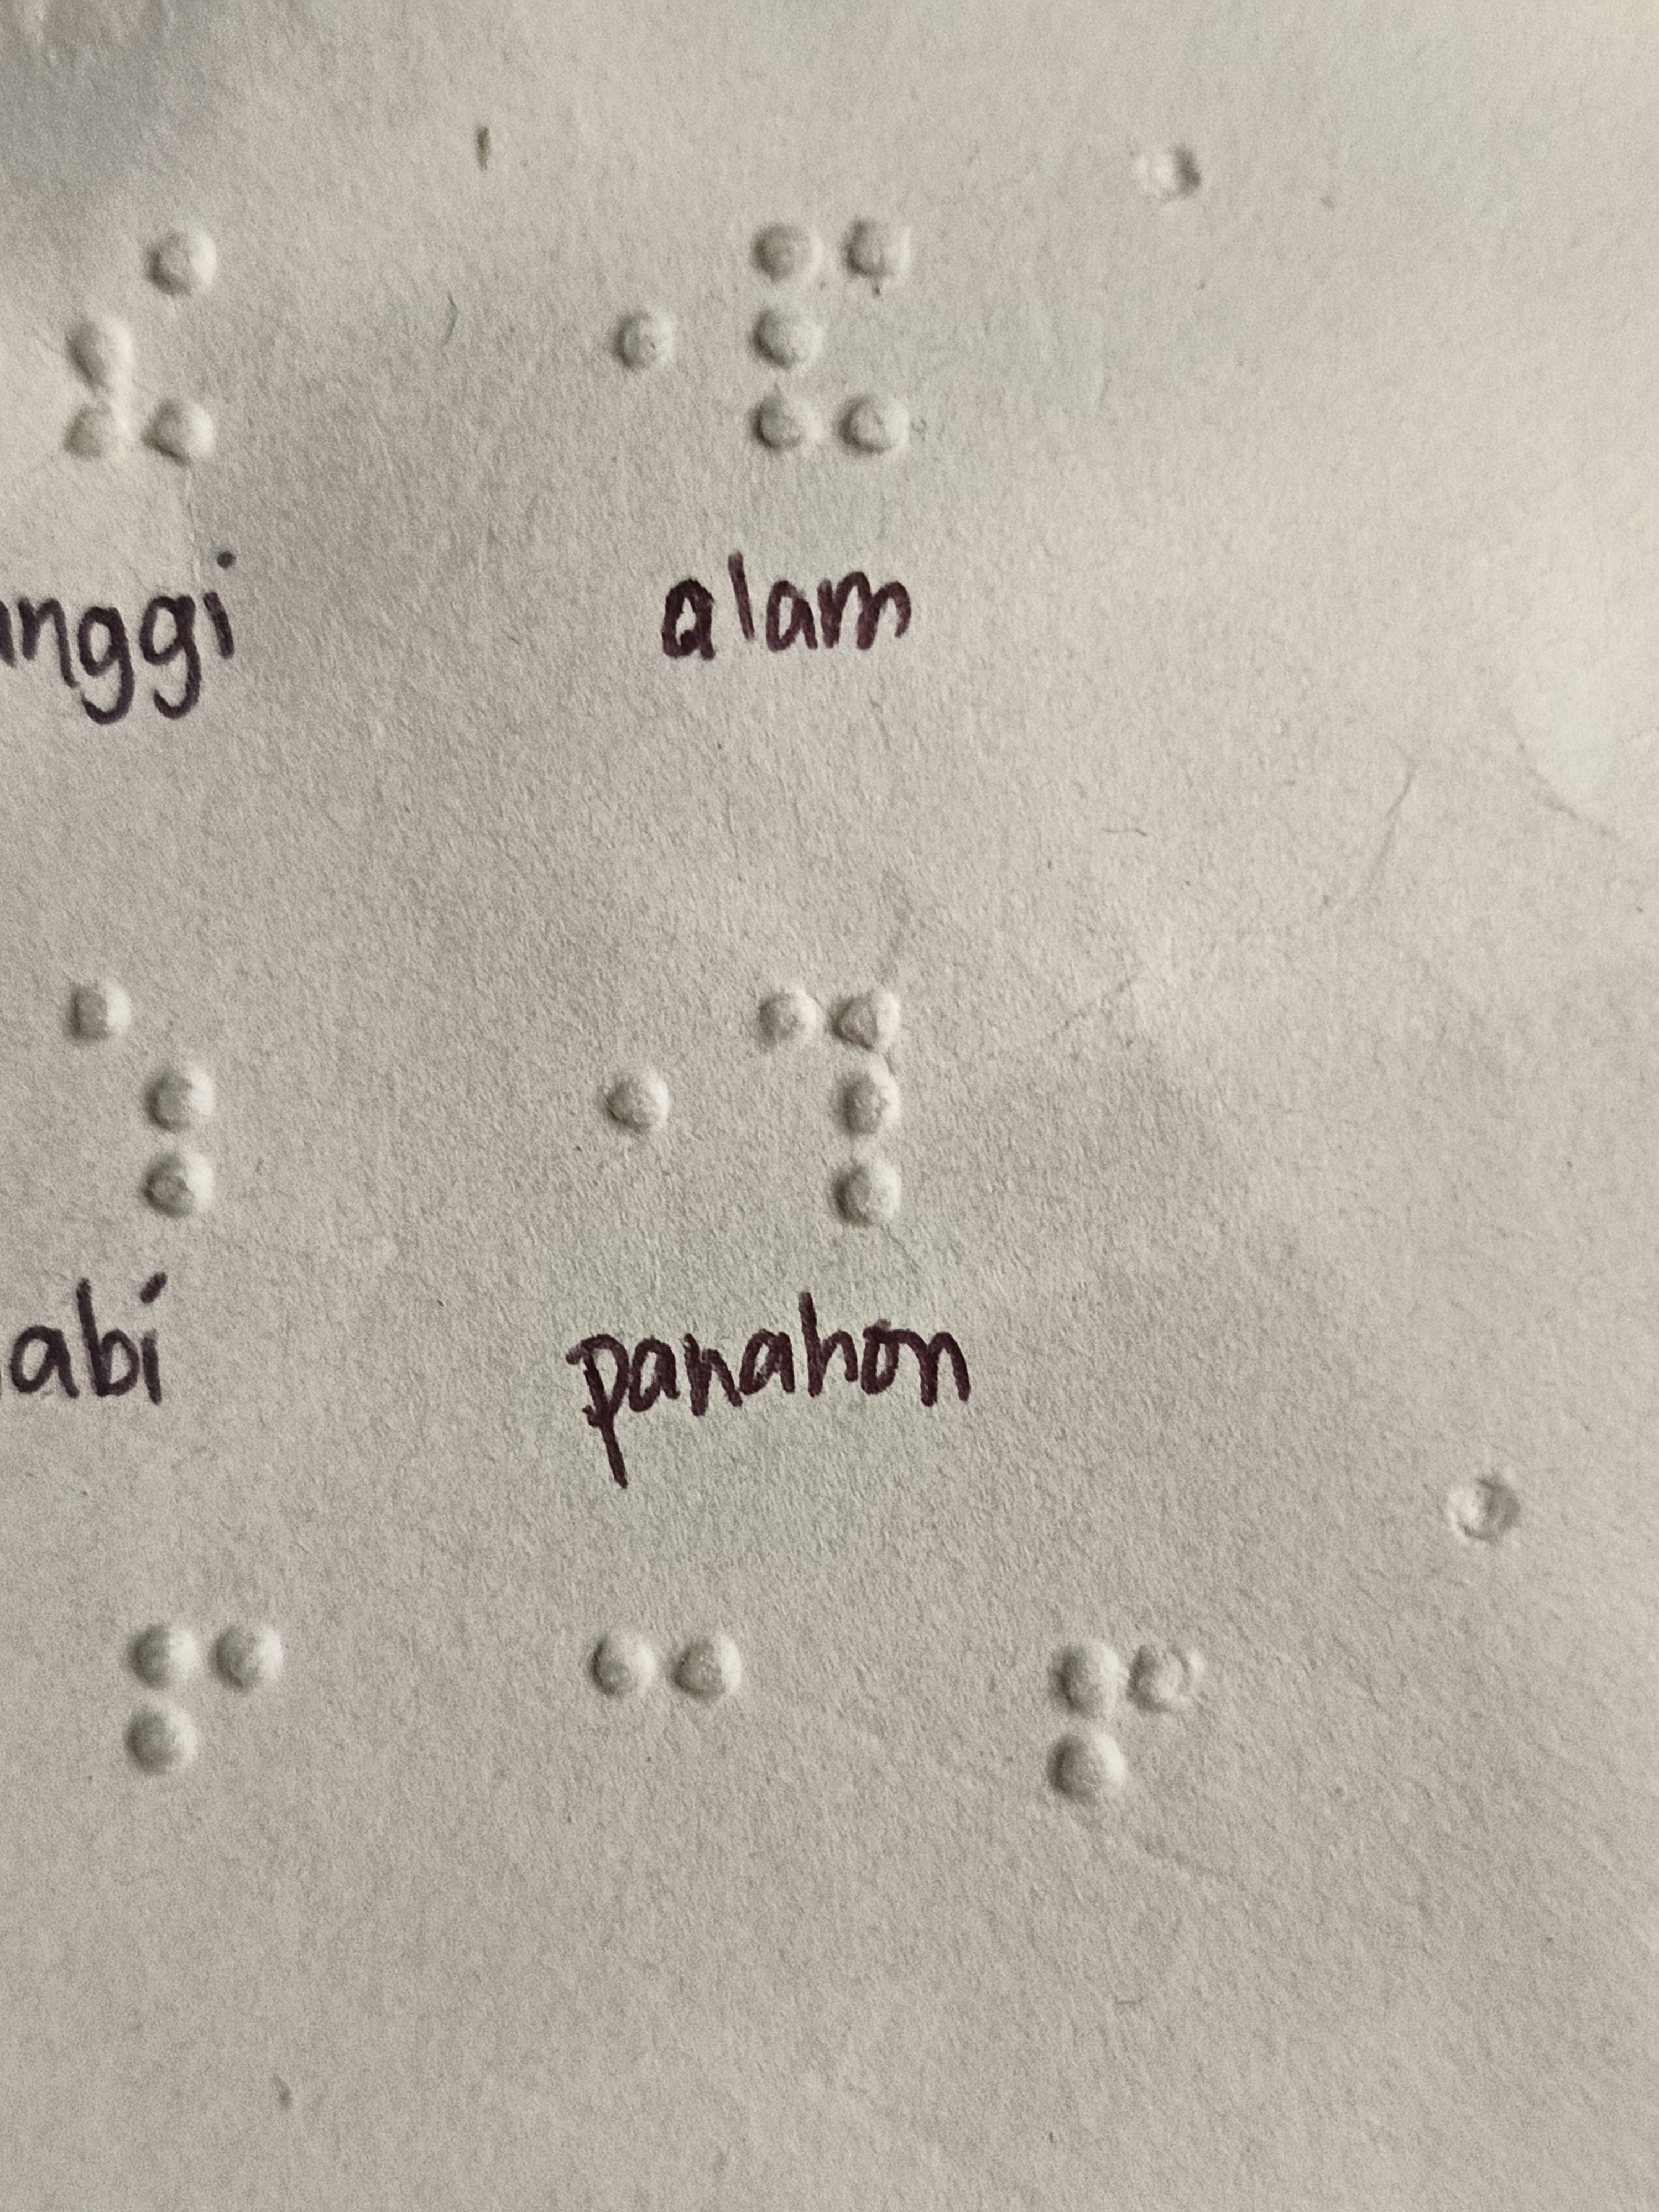 ⠮ ⠐⠯
anggi alam
⠱ ⠐⠹
abi panahon
⠋ ⠉ ⠋